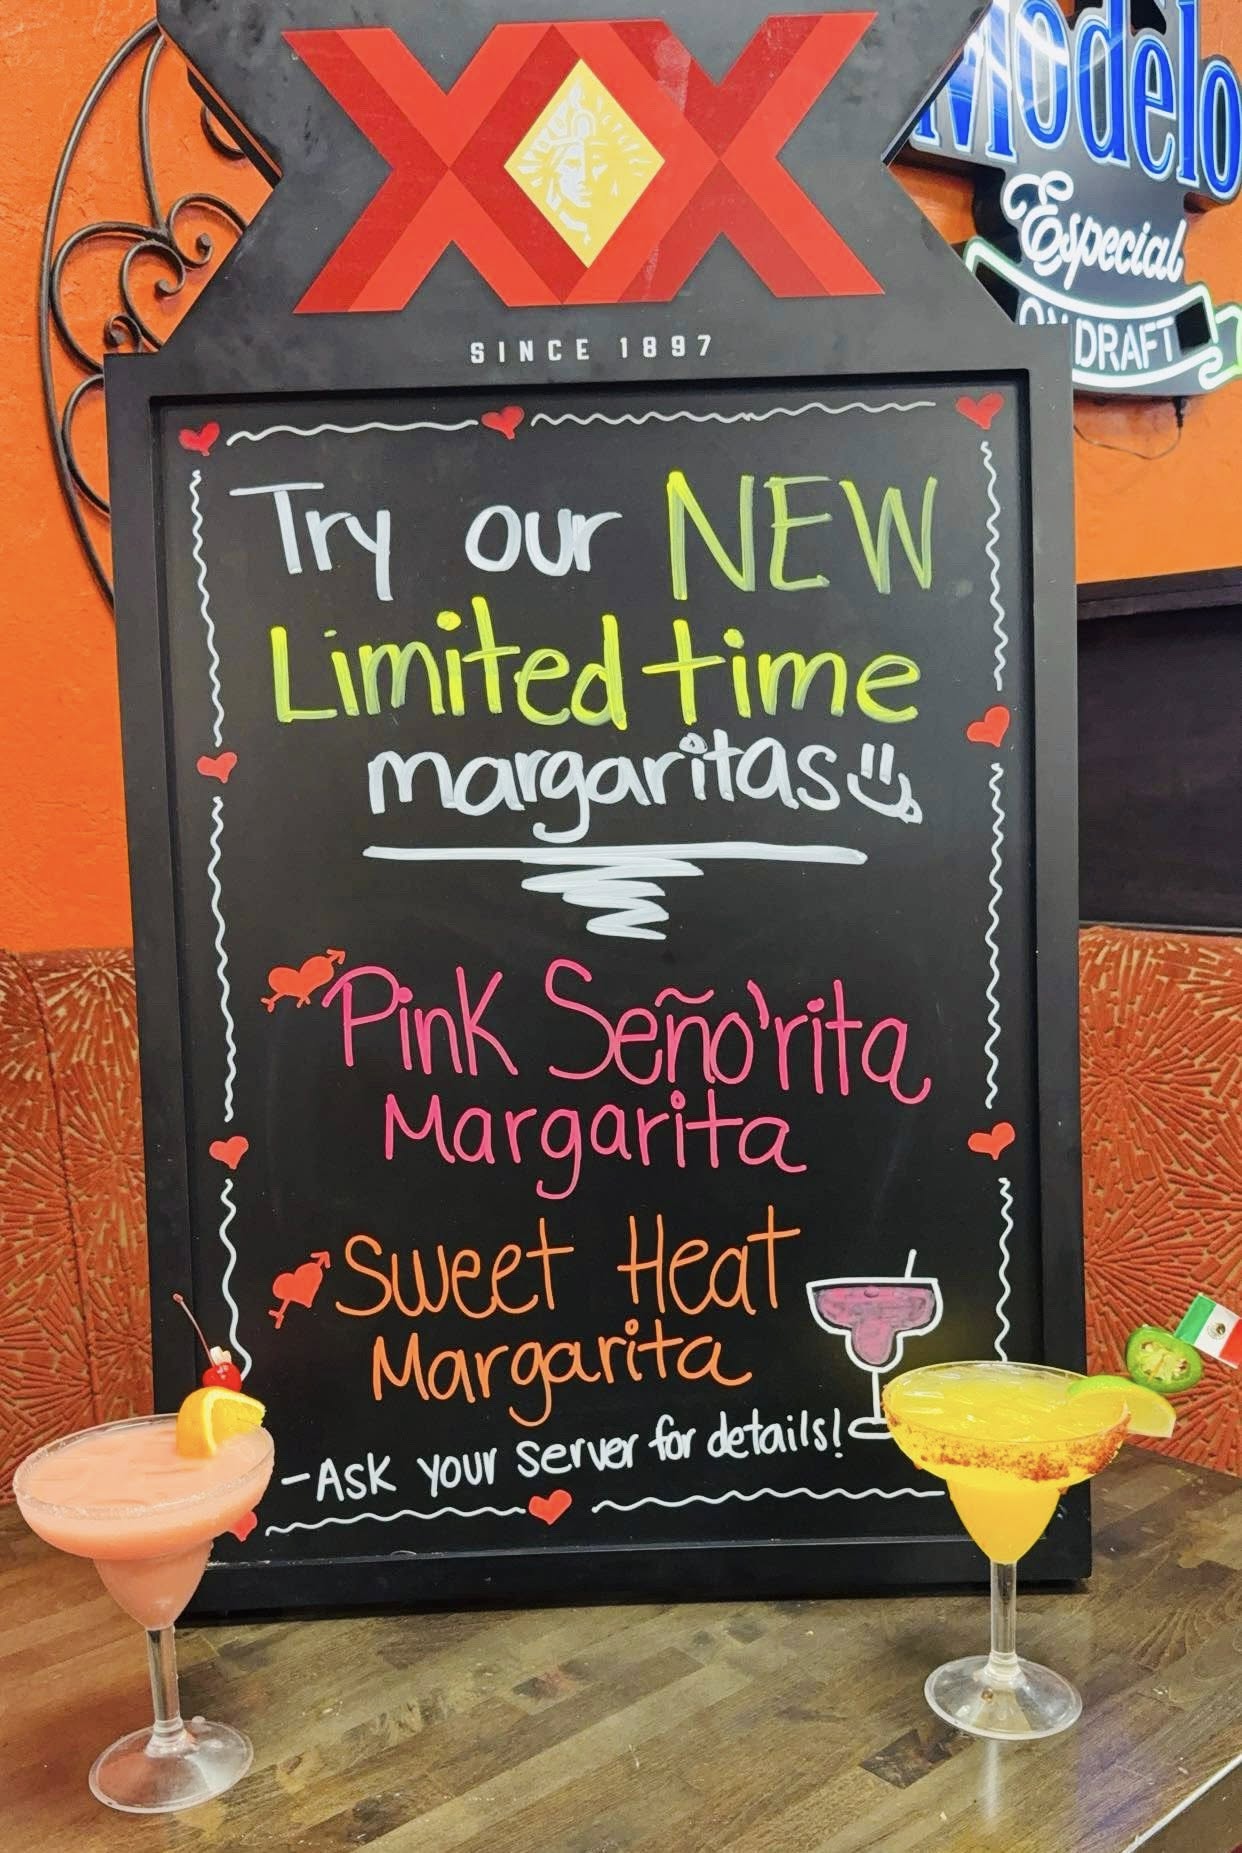 XX
SINCE 1897
Modelo
Especial
ON DRAFT
Try our NEW
Limited time
margaritas
Pink Seño'rita
Margarita
Sweet Heat
Margarita
-Ask your server for details!